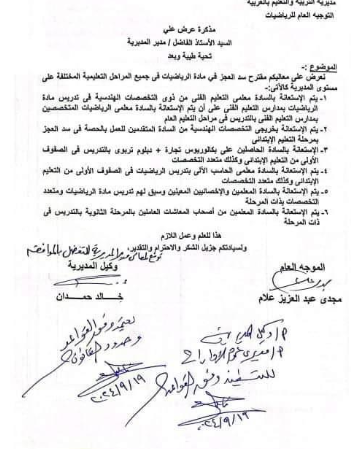 مديرية التربية والتعليم بالغربية
التوجيه العام للرياضيات
مذكرة عرض علي
السيد الأستاذ الفاضل / مدير المديرية
تحية طيبة وبعد
الموضوع :-
نعرض على معاليكم مقترح سد العجز في مادة الرياضيات فى جميع المراحل التعليمية المختلفة على
مستوى المديرية كالأتى:-
١- يتم الإستعانة بالسادة معلمى التعليم الفنى من ذوى التخصصات الهندسية فى تدريس مادة
الرياضيات بمدارس التعليم الفنى على أن يتم الإستعانة بالسادة معلمى الرياضيات المتخصصين
بمدارس التعليم الفنى بالتدريس فى مراحل التعليم العام
٢- يتم الإستعانة بخريجى التخصصات الهندسية من السادة المتقدمين للعمل بالحصة فى سد العجز
بمرحلة التعليم الإبتدائى
٣- يتم الإستعانة بالسادة الحاصلين على بكالوريوس تجارة + دبلوم تربوى بالتدريس فى الصفوف
الأولى من التعليم الإبتدائى وكذلك متعدد التخصصات
٤- يتم الإستعانة بالسادة معلمى الحاسب الألى بتدريس الرياضيات فى الصفوف الأولى من التعليم
الإبتدائى وكذلك متعدد التخصصات
٥- يتم الإستعانة بالسادة المعلمين والإخصائيين المعينين وسبق لهم تدريس مادة الرياضيات ومتعدد
التخصصات بذات المرحلة
٦- يتم الإستعانة بالسادة المعلمين من أصحاب المعاشات العاملين بالمرحلة الثانوية بالتدريس فى
ذات المرحلة
هذا للعلم وعمل اللازم
ولسيادتكم جزيل الشكر والاحترام والتقدير،
الموجه العام
وكيل المديرية
مجدى عبد العزيز علام
خالد حمدان
يعتمد وفق القواعد
وحدود القانون
٢٠٢٤/٩/١٩
للتنفيذ وفق القواعد
٢٠٢٤/٩/١٩